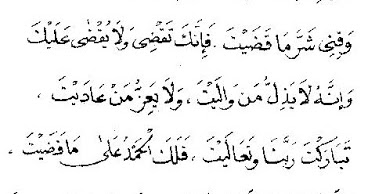 وَقِنِي شَرَّ مَا قَضَيْتَ . فَإِنَّكَ تَقْضِي وَلَا يُقْضَى عَلَيْكَ
وَإِنَّهُ لَا يَذِلُّ مَنْ وَالَيْتَ ، وَلَا يَعِزُّ مَنْ عَادَيْتَ ،
تَبَارَكْتَ رَبَّنَا وَتَعَالَيْتَ ، فَلَكَ الْحَمْدُ عَلَى مَا قَضَيْتَ ،